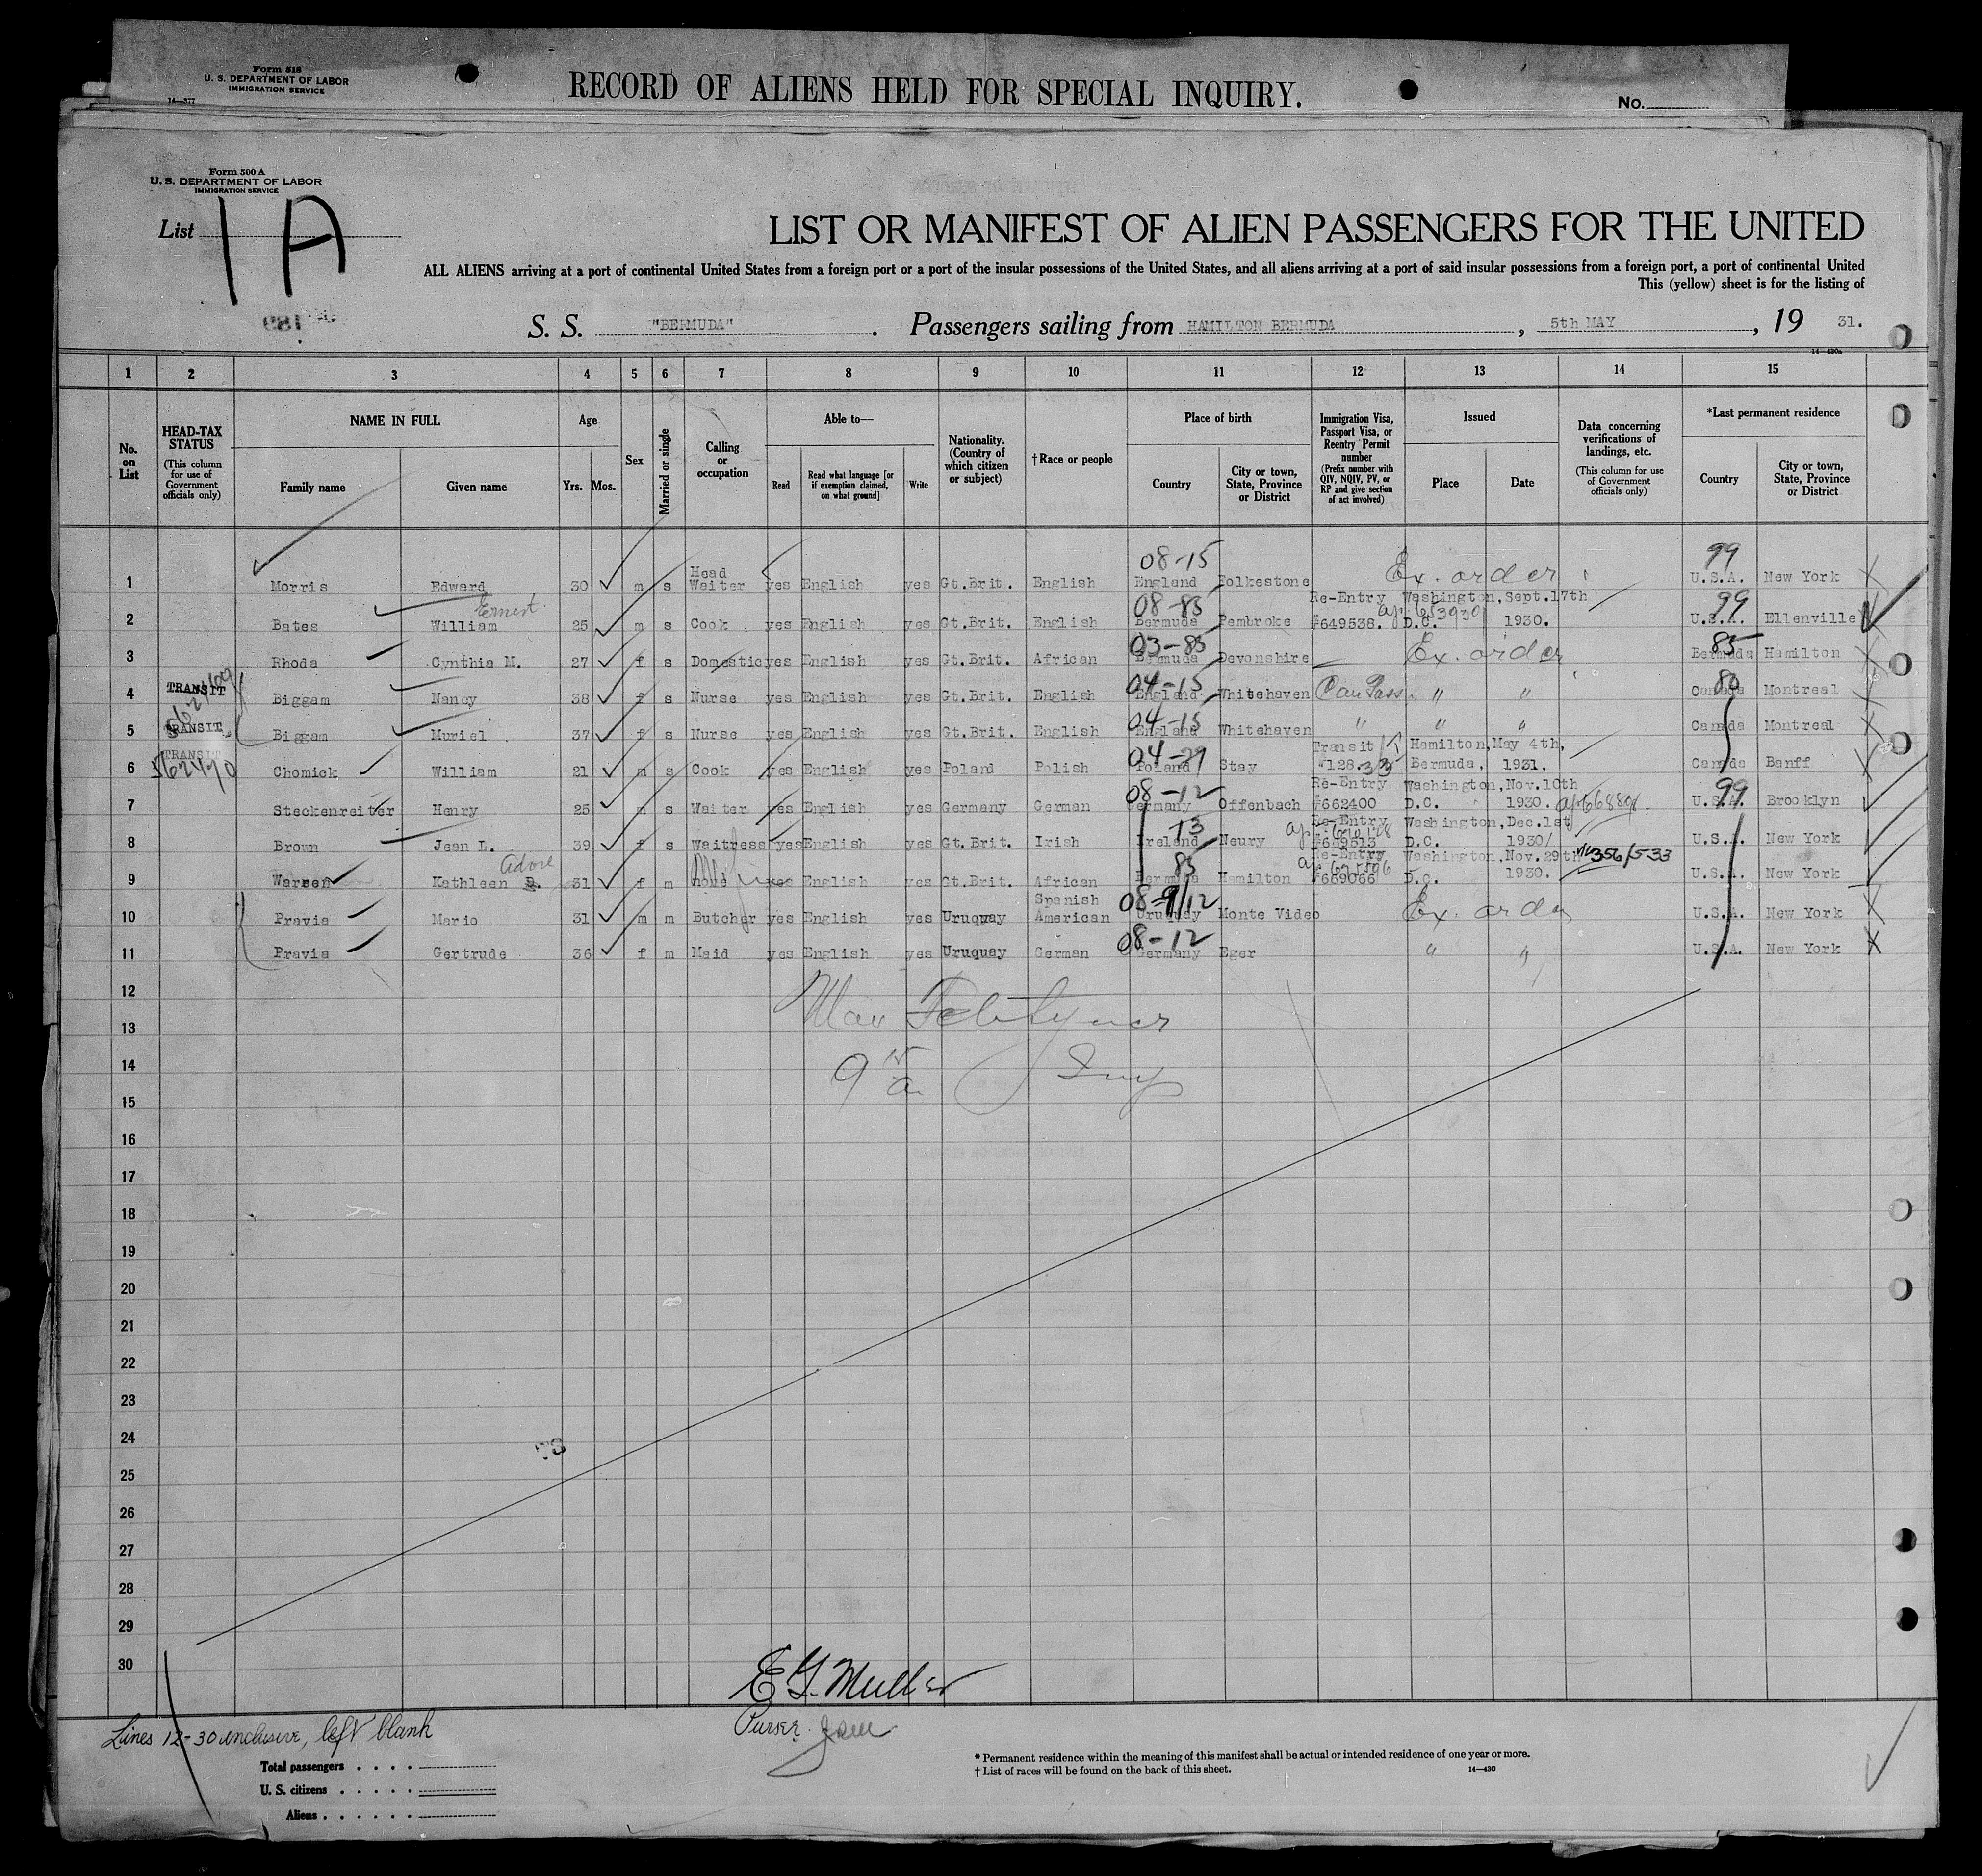 Form 518
U. S. DEPARTMENT OF LABOR
IMMIGRATION SERVICE
14—377
RECORD OF ALIENS HELD FOR SPECIAL INQUIRY.
No.
Form 500 A
U. S. DEPARTMENT OF LABOR
IMMIGRATION SERVICE
List 1A
LIST OR MANIFEST OF ALIEN PASSENGERS FOR THE UNITED
ALL ALIENS arriving at a port of continental United States from a foreign port or a port of the insular possessions of the United States, and all aliens arriving at a port of said insular possessions from a foreign port, a port of continental United
This (yellow) sheet is for the listing of
S. S. "BERMUDA". Passengers sailing from HAMILTON BERMUDA, 5th MAY, 19 31.
1 2 3 4 5 6 7 8 9 10 11 12 13 14 15
No. on List
HEAD-TAX STATUS
(This column for use of Government officials only)
NAME IN FULL
Family name
Given name
Age
Yrs. Mos.
Sex
Married or single
Calling or occupation
Able to—
Read
Read what language [or if exemption claimed, on what ground]
Write
Nationality. (Country of which citizen or subject)
†Race or people
Place of birth
Country
City or town, State, Province or District
Immigration Visa, Passport Visa, or Reentry Permit number
(Prefix number with QIV, NQIV, PV, or RP and give section of act involved)
Issued
Place
Date
Data concerning verifications of landings, etc.
(This column for use of Government officials only)
*Last permanent residence
Country
City or town, State, Province or District
08-15 99
1 Morris Edward 30 m s Head Waiter yes English yes Gt.Brit. English England Folkestone Ex. order U.S.A. New York
Ernest 08-85 Re-Entry Washington, Sept.17th 99
2 Bates William 25 m s Cook yes English yes Gt.Brit. English Bermuda Pembroke #649538. D.C. 1930. U.S.A. Ellenville
03-85 85
3 Rhoda Cynthia M. 27 f s Domestic yes English yes Gt.Brit. African Bermuda Devonshire Ex. order Bermuda Hamilton
TRANSIT 04-15 80
4 Biggam Nancy 38 f s Nurse yes English yes Gt.Brit. English England Whitehaven Can Pass. " " Canada Montreal
TRANSIT 04-15
5 Biggam Muriel 37 f s Nurse yes English yes Gt.Brit. English England Whitehaven " " " Canada Montreal
TRANSIT 04-29 Transit Hamilton, May 4th,
6 Chomick William 21 m s Cook yes English yes Poland Polish Poland Stay #128. Bermuda, 1931. Canada Banff
08-12 Re-Entry Washington, Nov.10th 99
7 Steckenreiter Henry 25 m s Waiter yes English yes Germany German Germany Offenbach #662400 D.C. 1930. U.S.A. Brooklyn
13 Re-Entry Washington, Dec.1st
8 Brown Jean L. 39 f s Waitress yes English yes Gt.Brit. Irish Ireland Neury #669513 D.C. 1930/ U.S.A. New York
85 Re-Entry Washington, Nov.29th 356/533
9 Warren Kathleen 31 f m none yes English yes Gt.Brit. African Bermuda Hamilton #669066 D.C. 1930. U.S.A. New York
10 Pravia Mario 31 m m Butcher yes English yes Uruquay Spanish American Uruquay Monte Video Ex. order U.S.A. New York
08-12
11 Pravia Gertrude 36 f m Maid yes English yes Uruquay German Germany Eger " " U.S.A. New York
12
13
14
15
16
17
18
19
20
21
22
23
24
25
26
27
28
29
30
E G. Muller
Purser.
Lines 12-30 inclusive, left blank
Total passengers
U. S. citizens
Aliens
* Permanent residence within the meaning of this manifest shall be actual or intended residence of one year or more.
† List of races will be found on the back of this sheet.
14—430